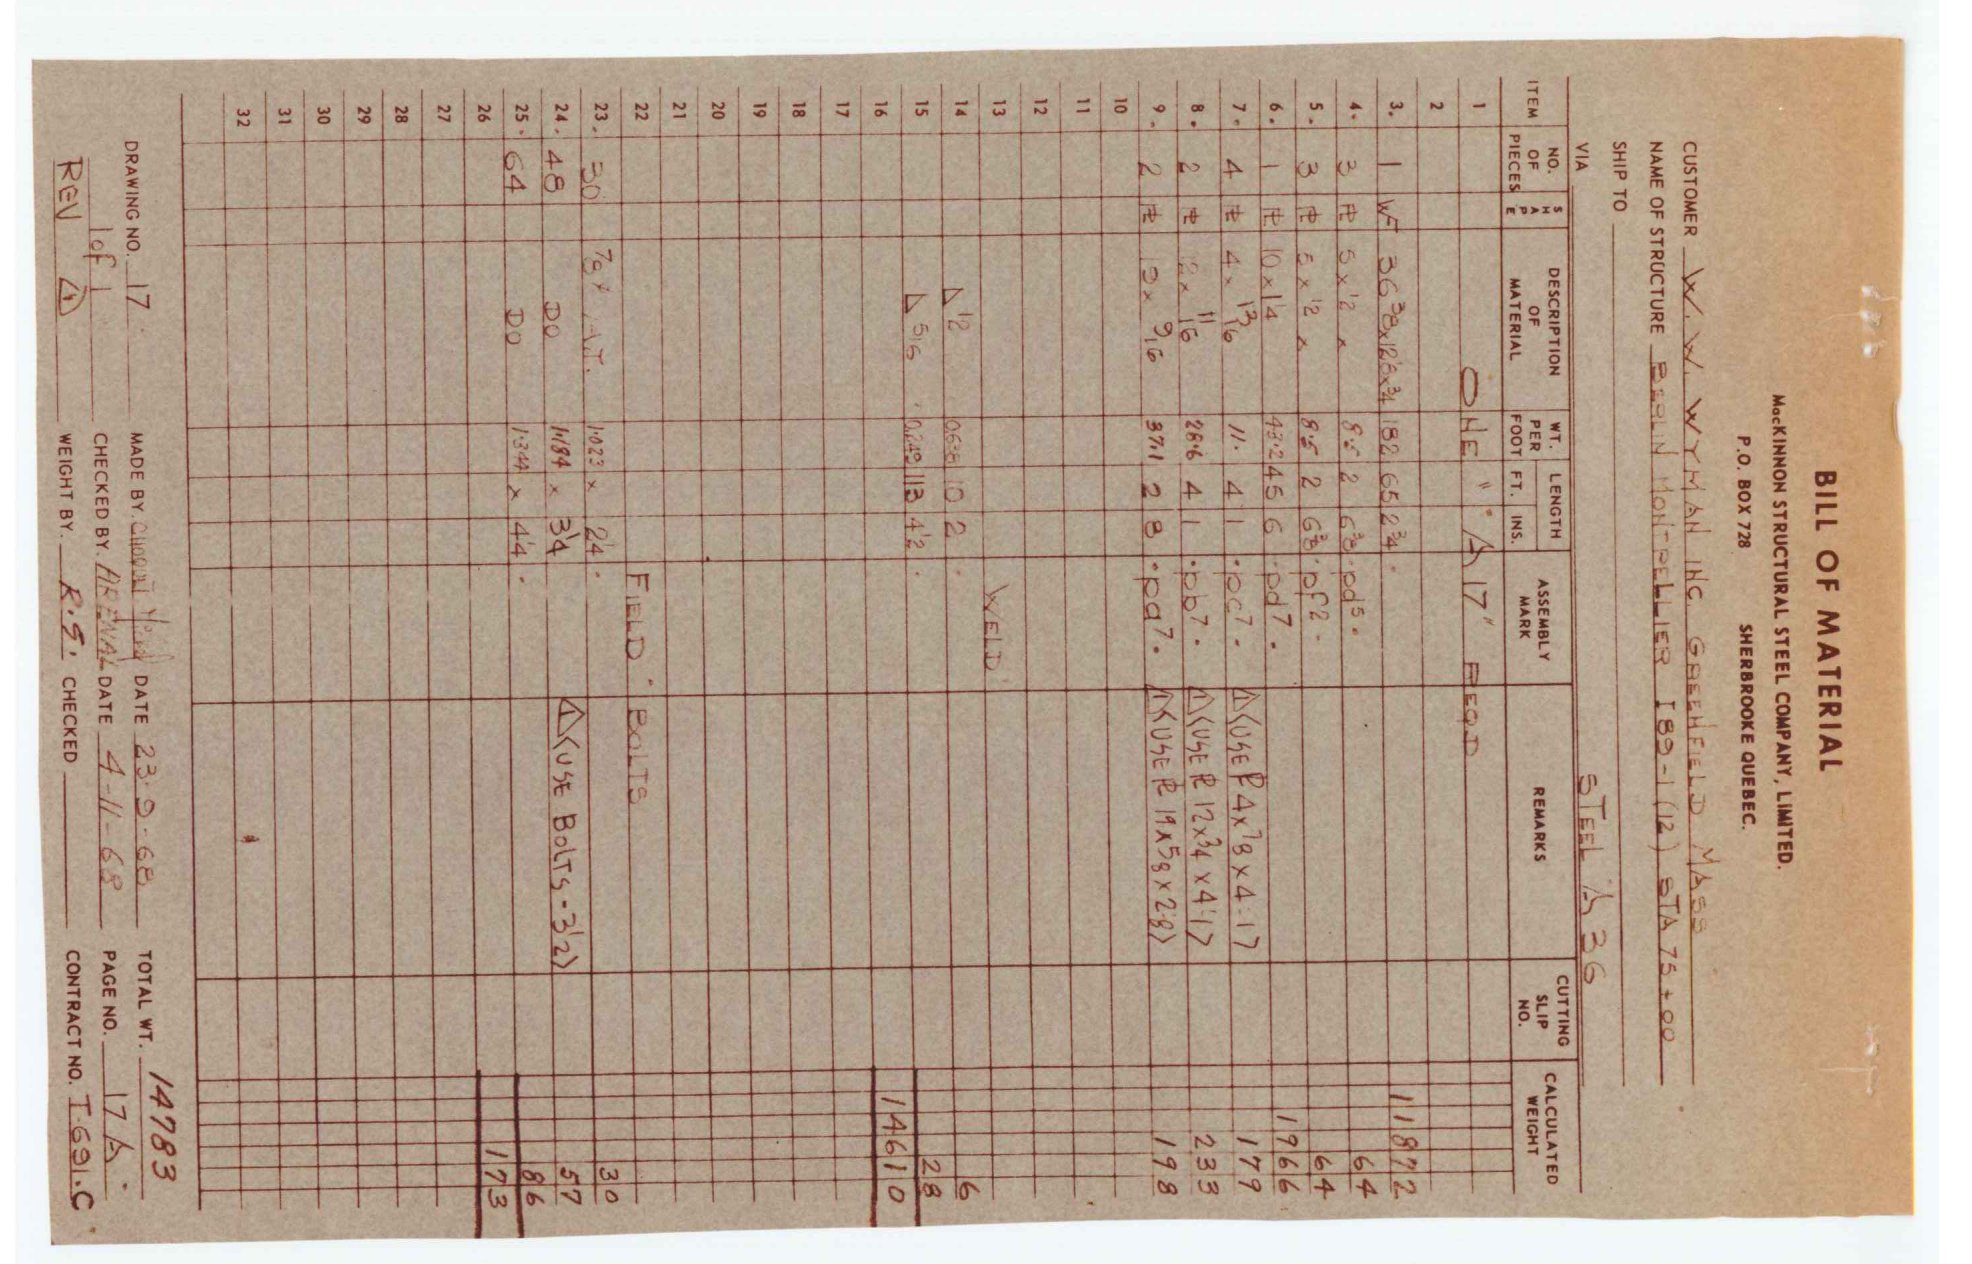 BILL OF MATERIAL
MacKINNON STRUCTURAL STEEL COMPANY, LIMITED.
P.O. BOX 728 SHERBROOKE QUEBEC.
CUSTOMER W. W. WYMAN INC. GREENFIELD MASS
NAME OF STRUCTURE BERLIN MONTPELLIER I89-1(12) STA 75+00
SHIP TO
VIA STEEL A36
ITEM NO. OF PIECES SHAPE DESCRIPTION OF MATERIAL WT. PER FOOT LENGTH FT. INS. ASSEMBLY MARK REMARKS CUTTING SLIP NO. CALCULATED WEIGHT
1 ONE "A17" REQD
2
3. 1 WF 36 3/8 x 12 1/8 x 3/4 182 65 2 3/4 . 11872
4. 3 PL 5 x 1/2 x 8.5 2 6 3/8 . pd5 . 64
5. 3 PL 5 x 1/2 x 8.5 2 6 3/8 . pf2 . 64
6. 1 PL 10 x 1 1/4 43.2 45 6 . pd7 . 1966
7. 4 PL 4 x 13/16 11. 4 1 . pc7 . △1 (USE PL 4 x 7/8 x 4.1) 179
8. 2 PL 12 x 11/16 28.6 4 1 . pb7 . △1 (USE PL 12 x 3/4 x 4'1) 233
9. 2 PL 19 x 9/16 37.1 2 8 . pa7 . △1 (USE PL 19 x 5/8 x 2.8) 198
10
11
12
13 WELD
14 △ 1/2 0.638 10 2 . 6
15 △ 5/16 . 0.249 113 4 1/2 . 28
16 14610
17
18
19
20
21
22 FIELD BOLTS
23. 30 7/8 x 1.023 x 2 1/4 . 30
24. 48 DO 1.184 x 3 1/4 △1 (USE BOLTS - 3 1/2) 57
25. 64 DO 1.344 x 4 1/4 . 86
26 173
27
28
29
30
31
32
DRAWING NO. 17 MADE BY. DATE 23.9.68 TOTAL WT. 14783
1 of 1 CHECKED BY. ARENAL DATE 4-11-68 PAGE NO. 17A.
REV △1 WEIGHT BY. R.S. CHECKED CONTRACT NO. I-691.C